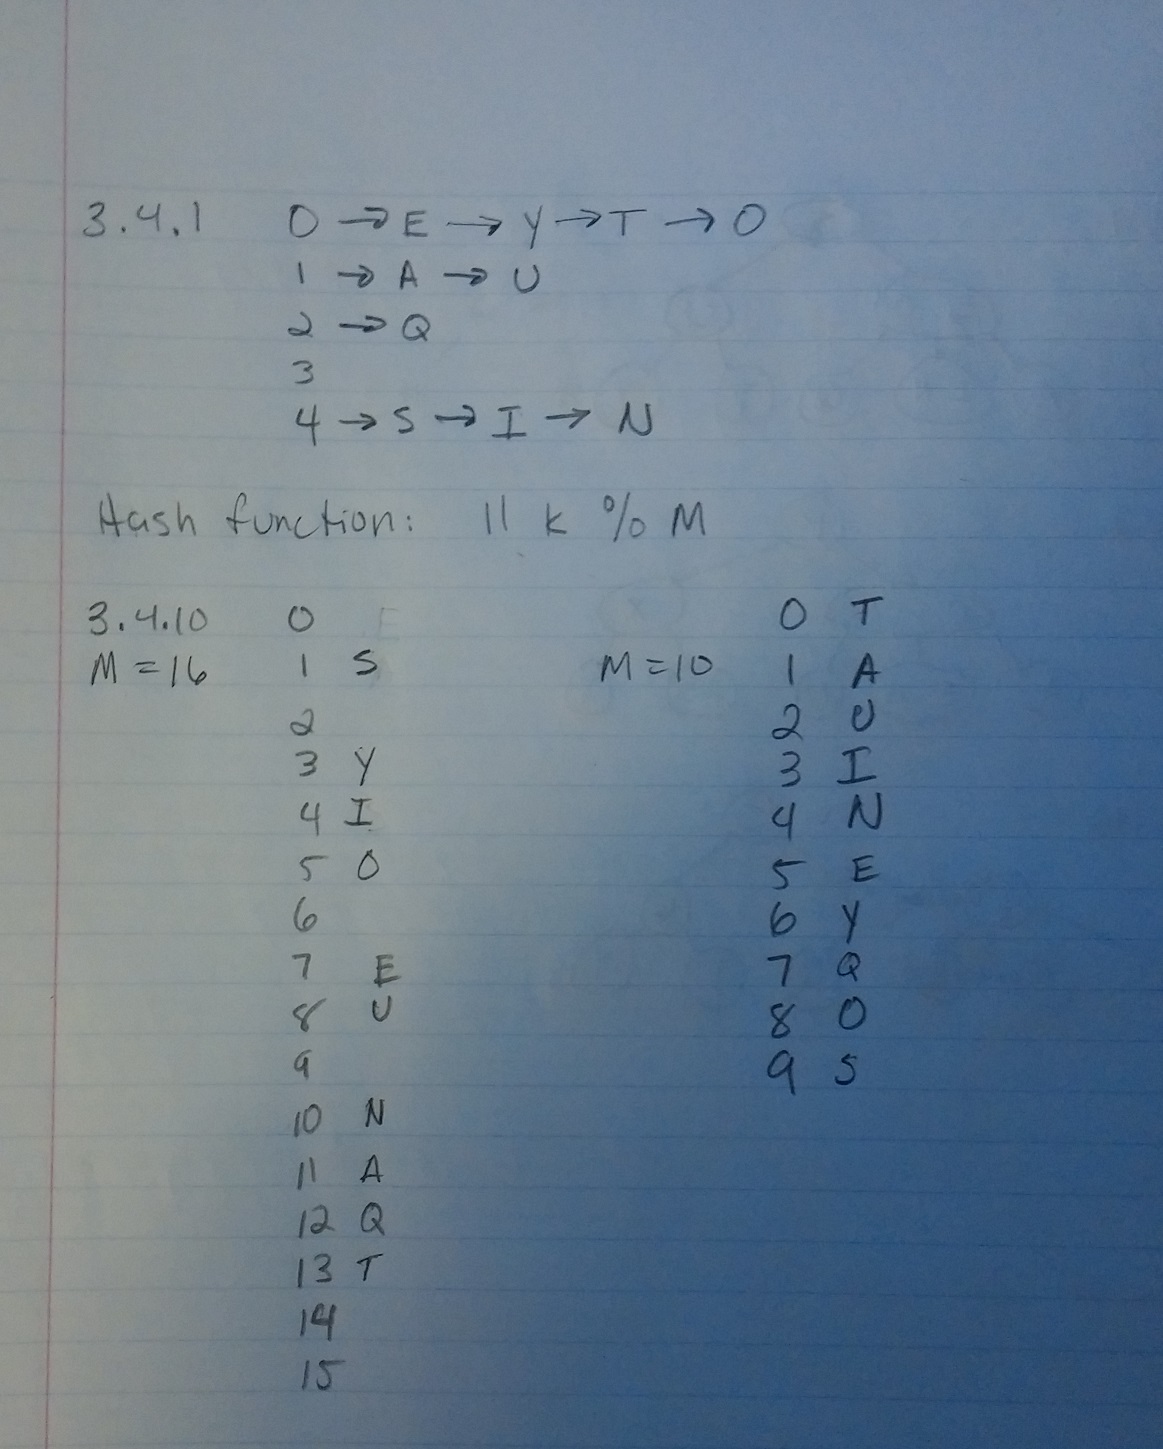 3.4.1 0 → E → Y → T → O
1 → A → U
2 → Q
3
4 → S → I → N
Hash function: 11 k % M
3.4.10 0
M = 16 1 S
2
3 Y
4 I
5 O
6
7 E
8 U
9
10 N
11 A
12 Q
13 T
14
15
0 T
M = 10 1 A
2 U
3 I
4 N
5 E
6 Y
7 Q
8 O
9 S